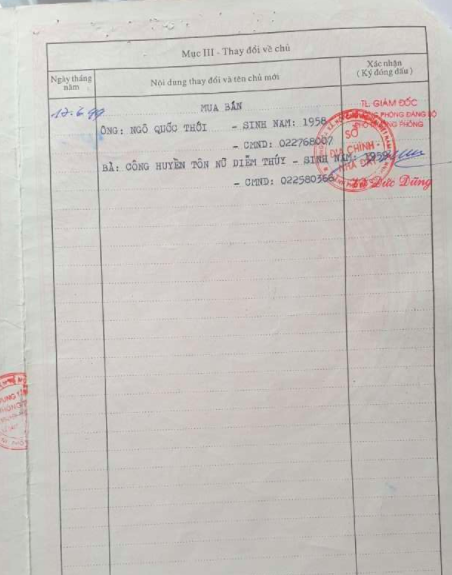 Mục III - Thay đổi về chủ
Ngày tháng năm
Nội dung thay đổi và tên chủ mới
Xác nhận
( Ký đóng dấu )
12.6.99
MUA BÁN
ÔNG: NGÔ QUỐC THỚI - SINH NĂM: 1956
- CMND: 022768007
BÀ: CÔNG HUYỀN TÔN NỮ DIỄM THÚY - SINH NĂM: 1959
- CMND: 022580366
TL GIÁM ĐỐC
PHÒNG ĐĂNG BỘ
PHÒNG
SỞ
ĐỊA CHÍNH
NHÀ ĐẤT
Đức Dũng